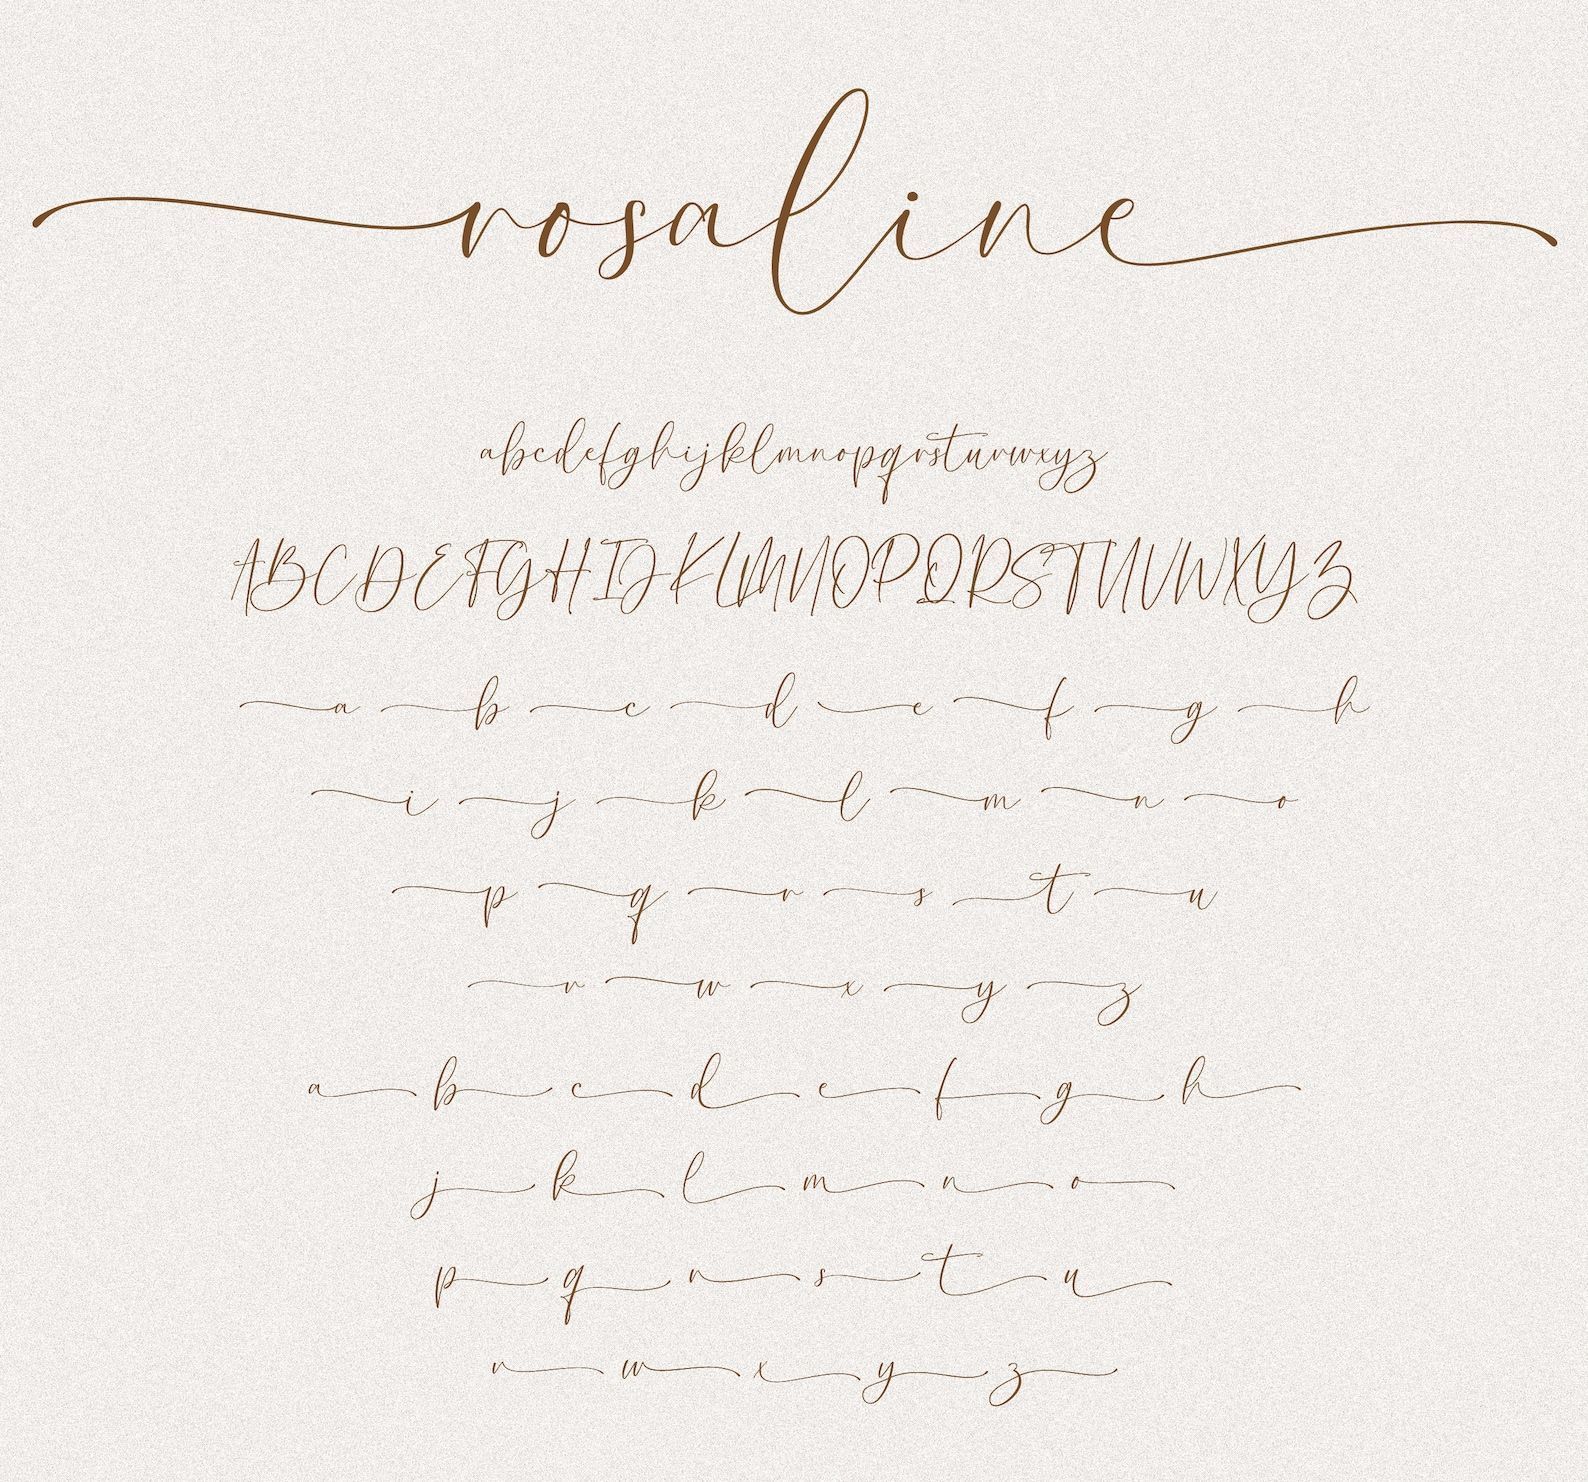 rosaline
abcdefghijklmnopqrstuvwxyz
ABCDEFGHIJKLMNOPQRSTUVWXYZ
a b c d e f g h
i j k l m n o
p q r s t u
v w x y z
a b c d e f g h
j k l m n o
p q r s t u
v w x y z